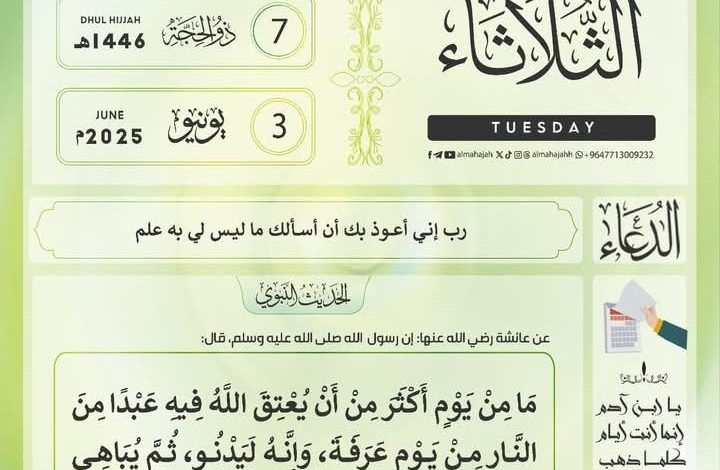 الثُّلَاثَاء
TUESDAY
almahajah almahajahh +9647713009232
DHUL HIJJAH
1446هـ
ذُو الحِجَّة
7
JUNE
2025م
يونيو
3
الدُعَاء
رب إني أعوذ بك أن أسألك ما ليس لي به علم
الحَدِيثُ النَّبَوِي
عن عائشة رضي الله عنها: إن رسول الله صلى الله عليه وسلم، قال:
مَا مِنْ يَوْمٍ أَكْثَرَ مِنْ أَنْ يُعْتِقَ اللَّهُ فِيهِ عَبْدًا مِنَ
النَّارِ مِنْ يَوْمِ عَرَفَةَ، وَإِنَّهُ لَيَدْنُو، ثُمَّ يُبَاهِي
يا ابن آدم
إنما أنت أيام
كلما ذهب